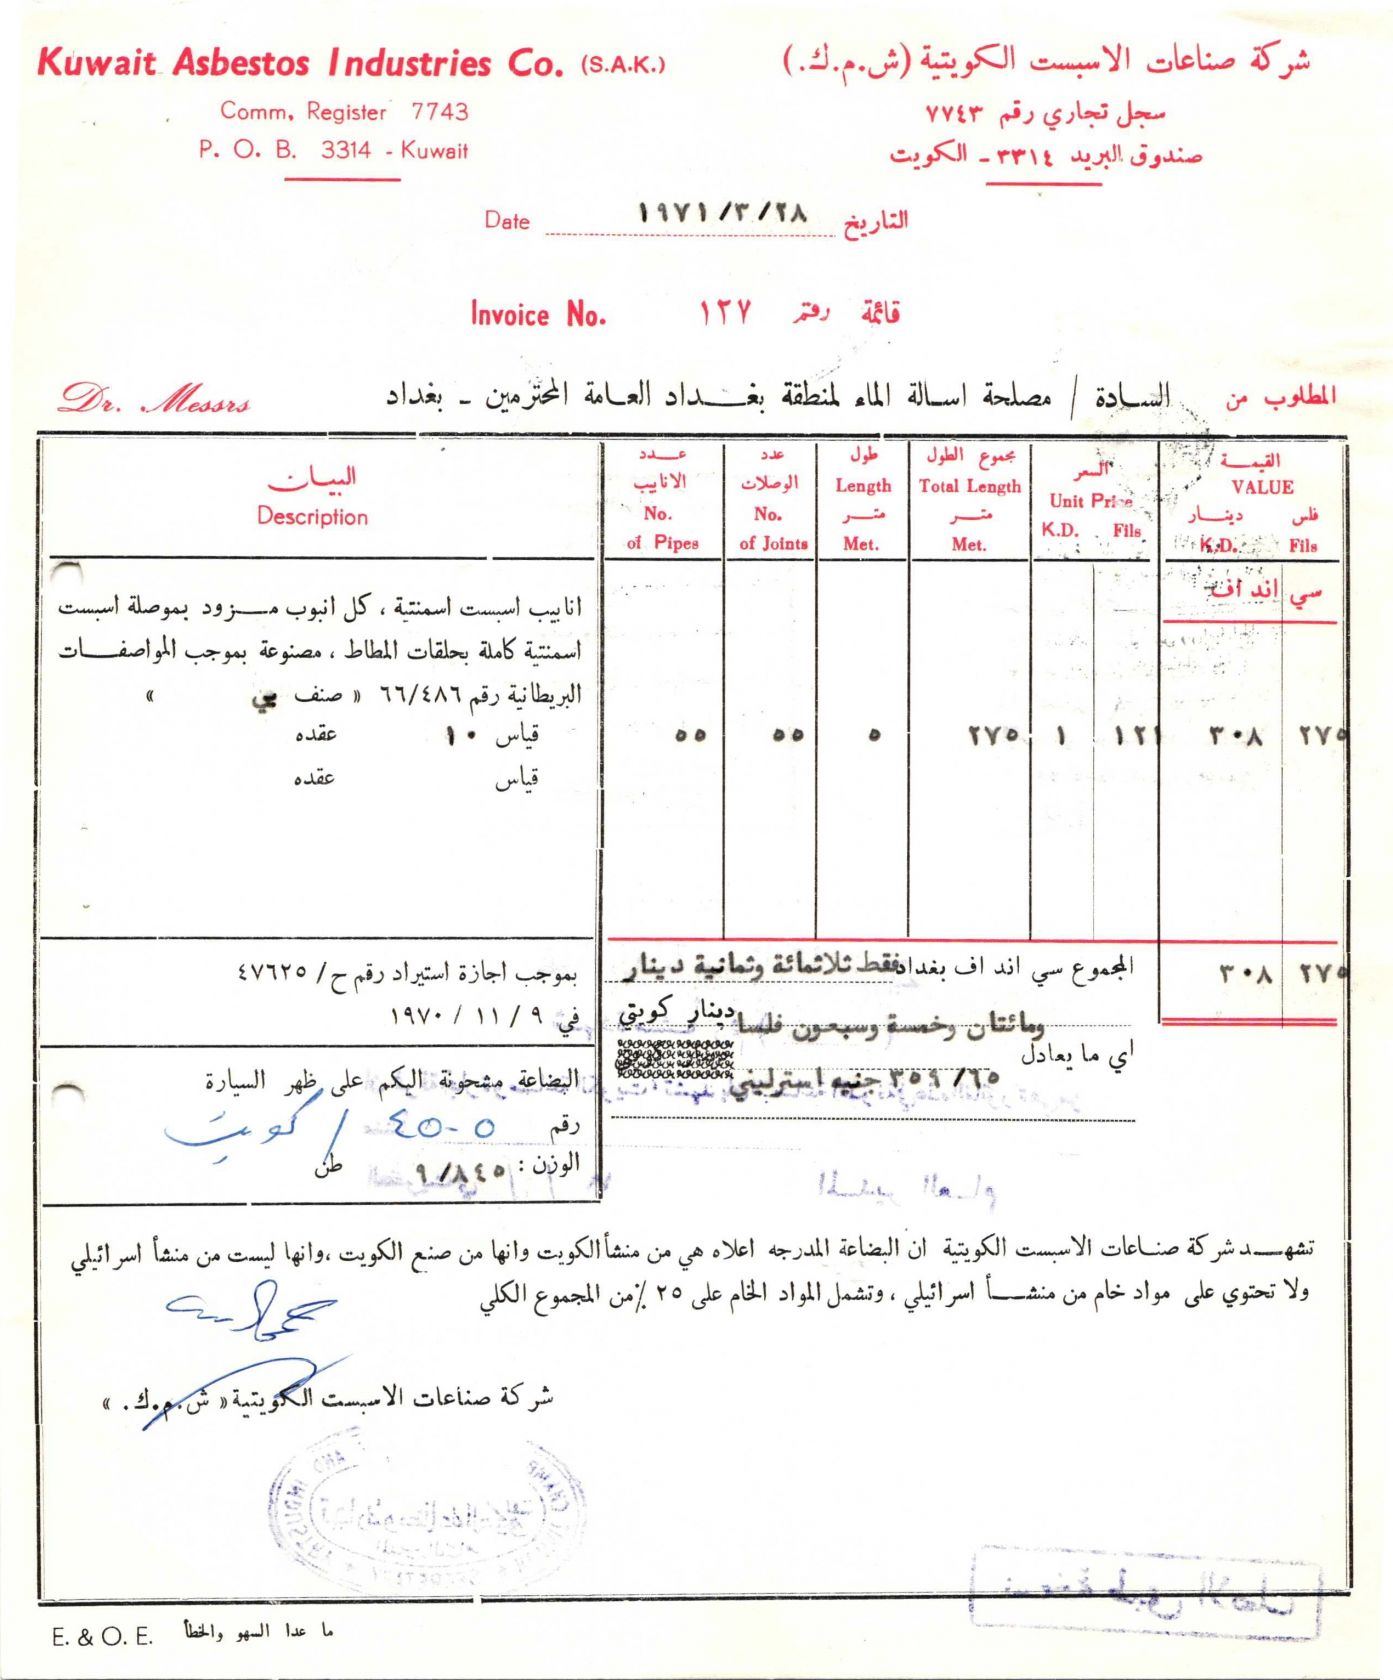 Kuwait Asbestos Industries Co. (S.A.K.)
شركة صناعات الاسبست الكويتية (ش.م.ك.)
Comm. Register 7743
سجل تجاري رقم ٧٧٤٣
P. O. B. 3314 - Kuwait
صندوق البريد ٣٣١٤ - الكويت
Date ١٩٧١/٣/٢٨ التاريخ
Invoice No. ١٢٧ قائمة رقم
Dr. Messrs
المطلوب من السادة / مصلحة اسالة الماء لمنطقة بغداد العامة المحترمين - بغداد
البيان
Description
عدد الانابيب
No. of Pipes
عدد الوصلات
No. of Joints
طول
Length
متر
Met.
مجموع الطول
Total Length
متر
Met.
السعر
Unit Price
K.D. Fils
القيمة
VALUE
دينار فلس
K.D. Fils
سي اند اف
انابيب اسبست اسمنتية ، كل انبوب مزود بموصلة اسبست
اسمنتية كاملة بحلقات المطاط ، مصنوعة بموجب المواصفات
البريطانية رقم ٦٦/٤٨٦ « صنف بي »
قياس ١٠ عقده
٥٥ ٥٥ ٥ ٢٧٥ ١ ١٢١ ٣٠٨ ٢٧٥
قياس عقده
بموجب اجازة استيراد رقم ح/ ٤٧٦٢٥
في ٩ / ١١ / ١٩٧٠
المجموع سي اند اف بغداد فقط ثلاثمائة وثمانية دينار
٣٠٨ ٢٧٥
ومائتان وخمسة وسبعون فلسا دينار كويتي
اي ما يعادل
٣٥٩/٦٥ جنيه استرليني
البضاعة مشحونة اليكم على ظهر السيارة
رقم ٤٥٠٥ / كويت
الوزن : ٩/٨٤٥ طن
تشهد شركة صناعات الاسبست الكويتية ان البضاعة المدرجه اعلاه هي من منشأ الكويت وانها من صنع الكويت ،وانها ليست من منشأ اسرائيلي
ولا تحتوي على مواد خام من منشأ اسرائيلي ، وتشمل المواد الخام على ٢٥ ٪من المجموع الكلي
شركة صناعات الاسبست الكويتية « ش.م.ك. »
E. & O. E. ما عدا السهو والخطأ